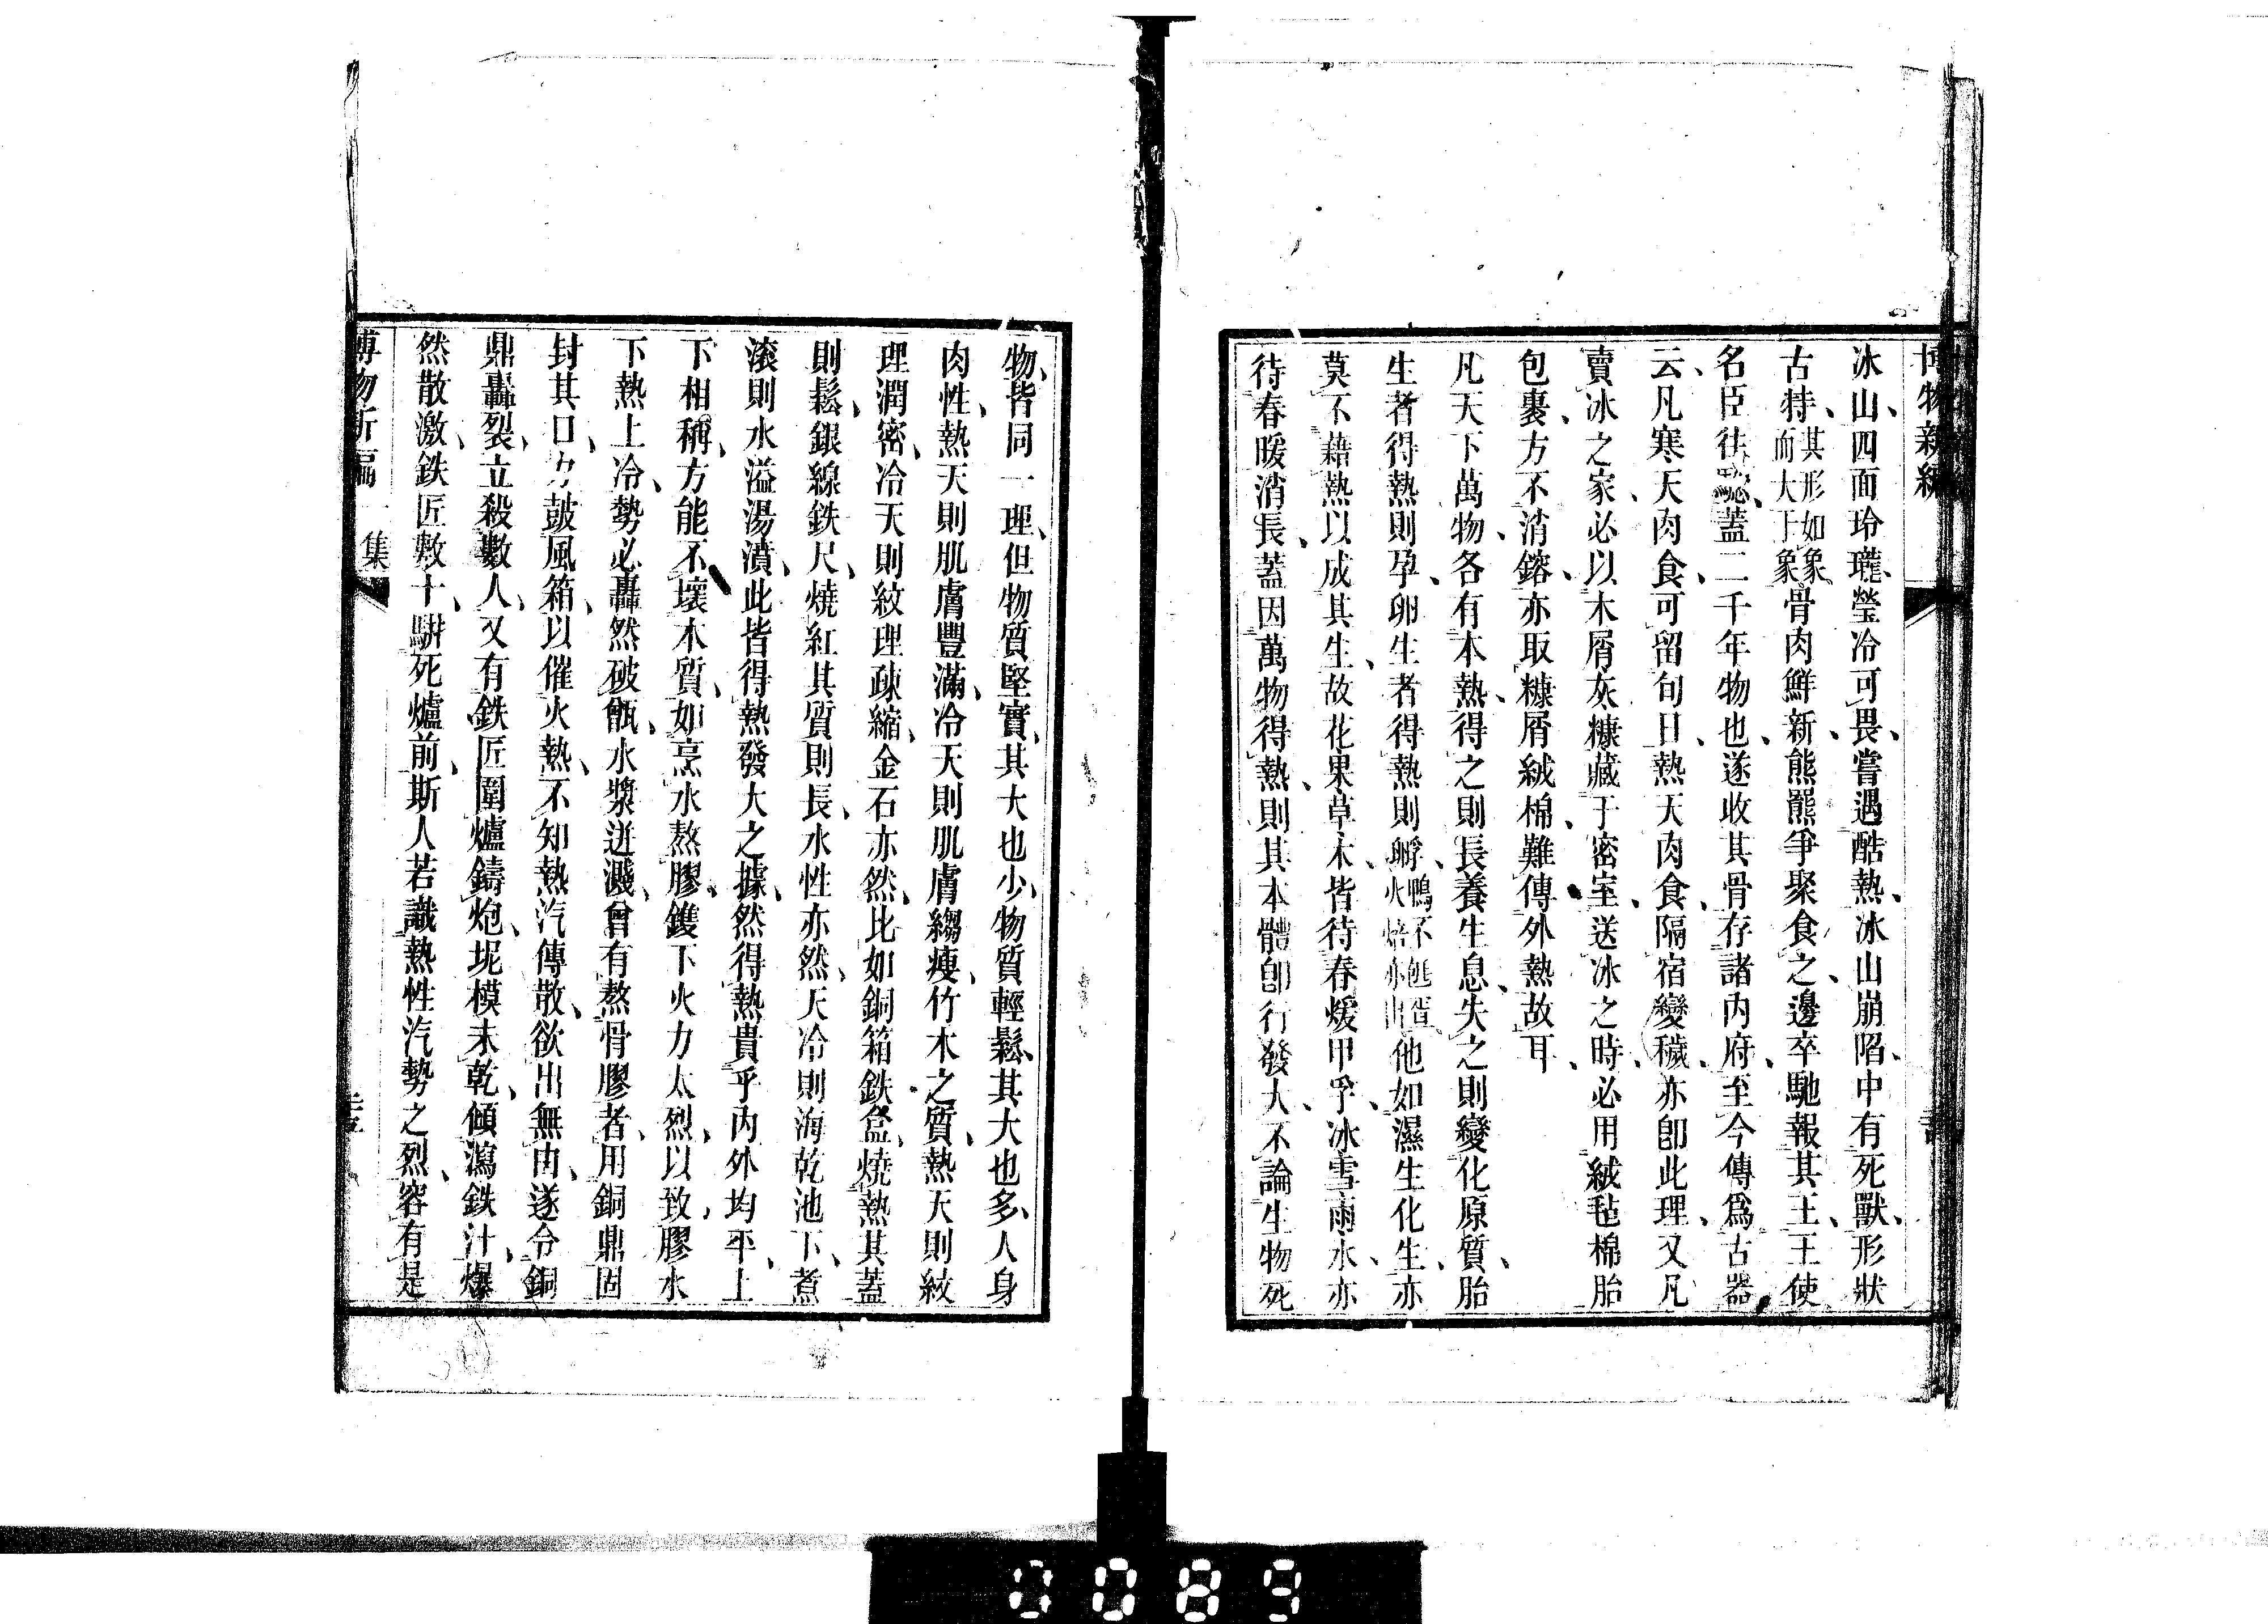 博物新編
冰山、四面玲瓏、瑩冷可畏、嘗遇酷熱、冰山崩陷、中有死獸、形狀
古特、其形如象、而大于象骨肉鮮新、熊羆爭聚食之、邊卒馳報其王、王使
名臣往驗、蓋二千年物也、遂收其骨存諸內府、至今傳爲古器
云、凡寒天肉食、可留旬日、熱天肉食、隔宿變穢、亦卽此理、又凡
賣冰之家、必以木屑灰糠藏于密室、送冰之時、必用絨毡棉胎
包裹、方不消鎔、亦取糠屑絨棉、難傳外熱故耳、
凡天下萬物、各有本熱、得之則長養生息、失之則變化原質、胎
生者得熱則孕、卵生者得熱則孵、鴨不雞、火焙亦出他如濕生化生、亦
莫不藉熱以成其生、故花果草木、皆待春煖甲孚、冰雪雨水、亦
待春暖消長、蓋因萬物得熱、則其本體卽行發大、不論生物死
物、皆同一理、但物質堅實、其大也少、物質輕鬆、其大也多、人身
肉性、熱天則肌膚豐滿、冷天則肌膚縐瘦、竹木之質、熱天則紋
理潤密、冷天則紋理疎縮、金石亦然、比如銅箱鉄盒、燒熱其蓋
則鬆、銀線鉄尺、燒紅其質則長、水性亦然、天冷則海乾池下、煮
滚則水溢湯濆、此皆得熱發大之據、然得熱貴乎內外均平、上
下相稱、方能不壞本質、如烹水熬膠、鑊下火力太烈、以致膠水
下熱上冷、勢必轟然破甑、水漿迸濺、曾有熬骨膠者、用銅鼎固
封其口、力鼓風箱、以催火熱、不知熱汽傳散、欲出無由、遂令銅
鼎轟裂、立殺數人、又有鉄匠圍爐鑄炮、坭模未乾、傾瀉鉄汁、爆
然散激、鉄匠數十、駢死爐前、斯人若識熱性汽勢之烈、容有是
博物新編 一集
0089